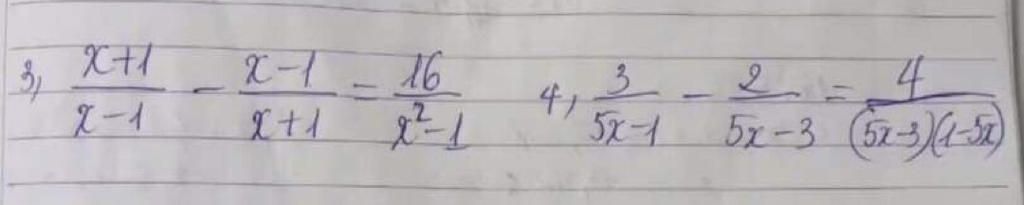 3, \frac{x+1}{x-1} - \frac{x-1}{x+1} = \frac{16}{x^2-1} 4, \frac{3}{5x-1} - \frac{2}{5x-3} = \frac{4}{(5x-3)(1-5x)}